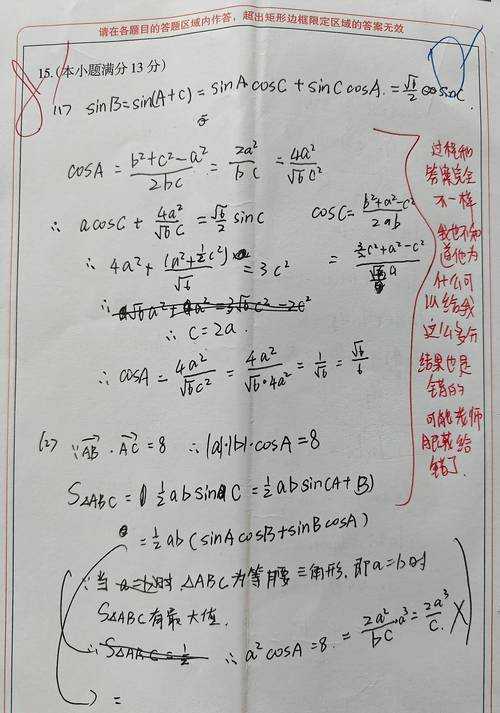 请在各题目的答题区域内作答，超出矩形边框限定区域的答案无效
8'
15.(本小题满分 13 分)
(1) sinB=sin(A+C)=sinAcosC+sinCcosA.=√6/2 sinC.
cosA=(b²+c²-a²)/2bc=2a²/bc=4a²/√6c²
∴ acosC+4a²/√6c=√6/2 sinC cosC=(b²+a²-c²)/2ab
∴ 4a²+(a²+½c²)/√6=3c² =(3/2c²+a²-c²)/√6a
∴ c=2a.
∴ cosA=4a²/√6c²=4a²/√6·4a²=1/√6=√6/6
(2) ∵AB·AC=8 ∴|a|·|b|·cosA=8
S△ABC=½absinC=½absin(A+B)
=½ab(sinAcosB+sinBcosA)
∵当a=b时,△ABC为等腰三角形,即a=b时
S△ABC有最大值.
∴S△ABC=½ ∴a²cosA=8.=2a²/bc·a³=2a³/c. X
=
过程和
答案完全
不一样
我也不知
道他为
什么可
以给我
这么多分
结果也是
错的
可能老师
眼花给
错了